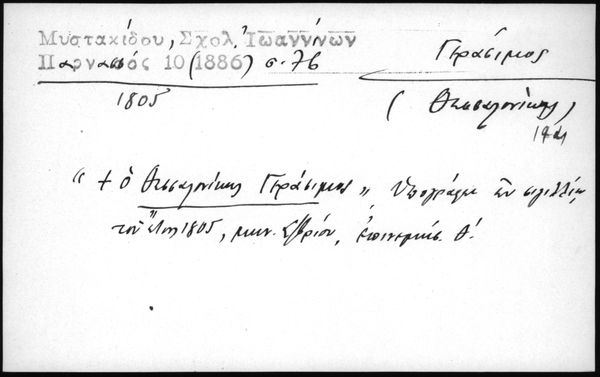 Μυστακίδου, Σχολ. Ἰωαννίνων
Παρνασσός 10 (1886) σ. 76
Γεράσιμος
1805
(Θεσσαλονίκης)
"+ ὁ Θεσσαλονίκης Γεράσιμος", Ὑπογράφει ἐν σιγιλλίῳ
τοῦ ἔτους 1805, μην. Σ/βρίου, ἐπινεμήσ. θ'.